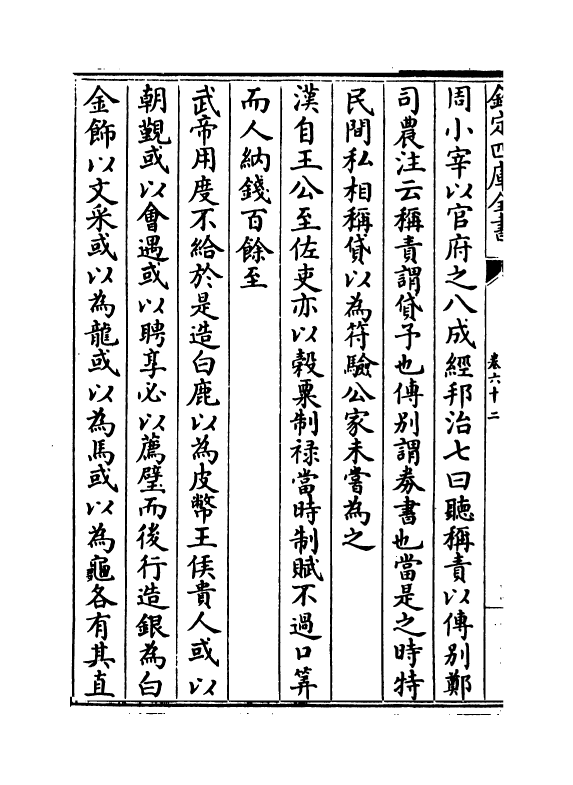 欽定四庫全書
卷六十二
周小宰以官府之八成經邦治七曰聽稱責以傅别鄭
司農注云稱責謂貸予也傅别謂劵書也當是之時特
民間私相稱貸以為符驗公家未嘗為之
漢自王公至佐吏亦以榖粟制禄當時制賦不過口筭
而人納錢百餘至
武帝用度不給於是造白鹿以為皮幣王侯貴人或以
朝覲或以會遇或以聘享必以薦璧而後行造銀為白
金飾以文采或以為龍或以為馬或以為龜各有其直